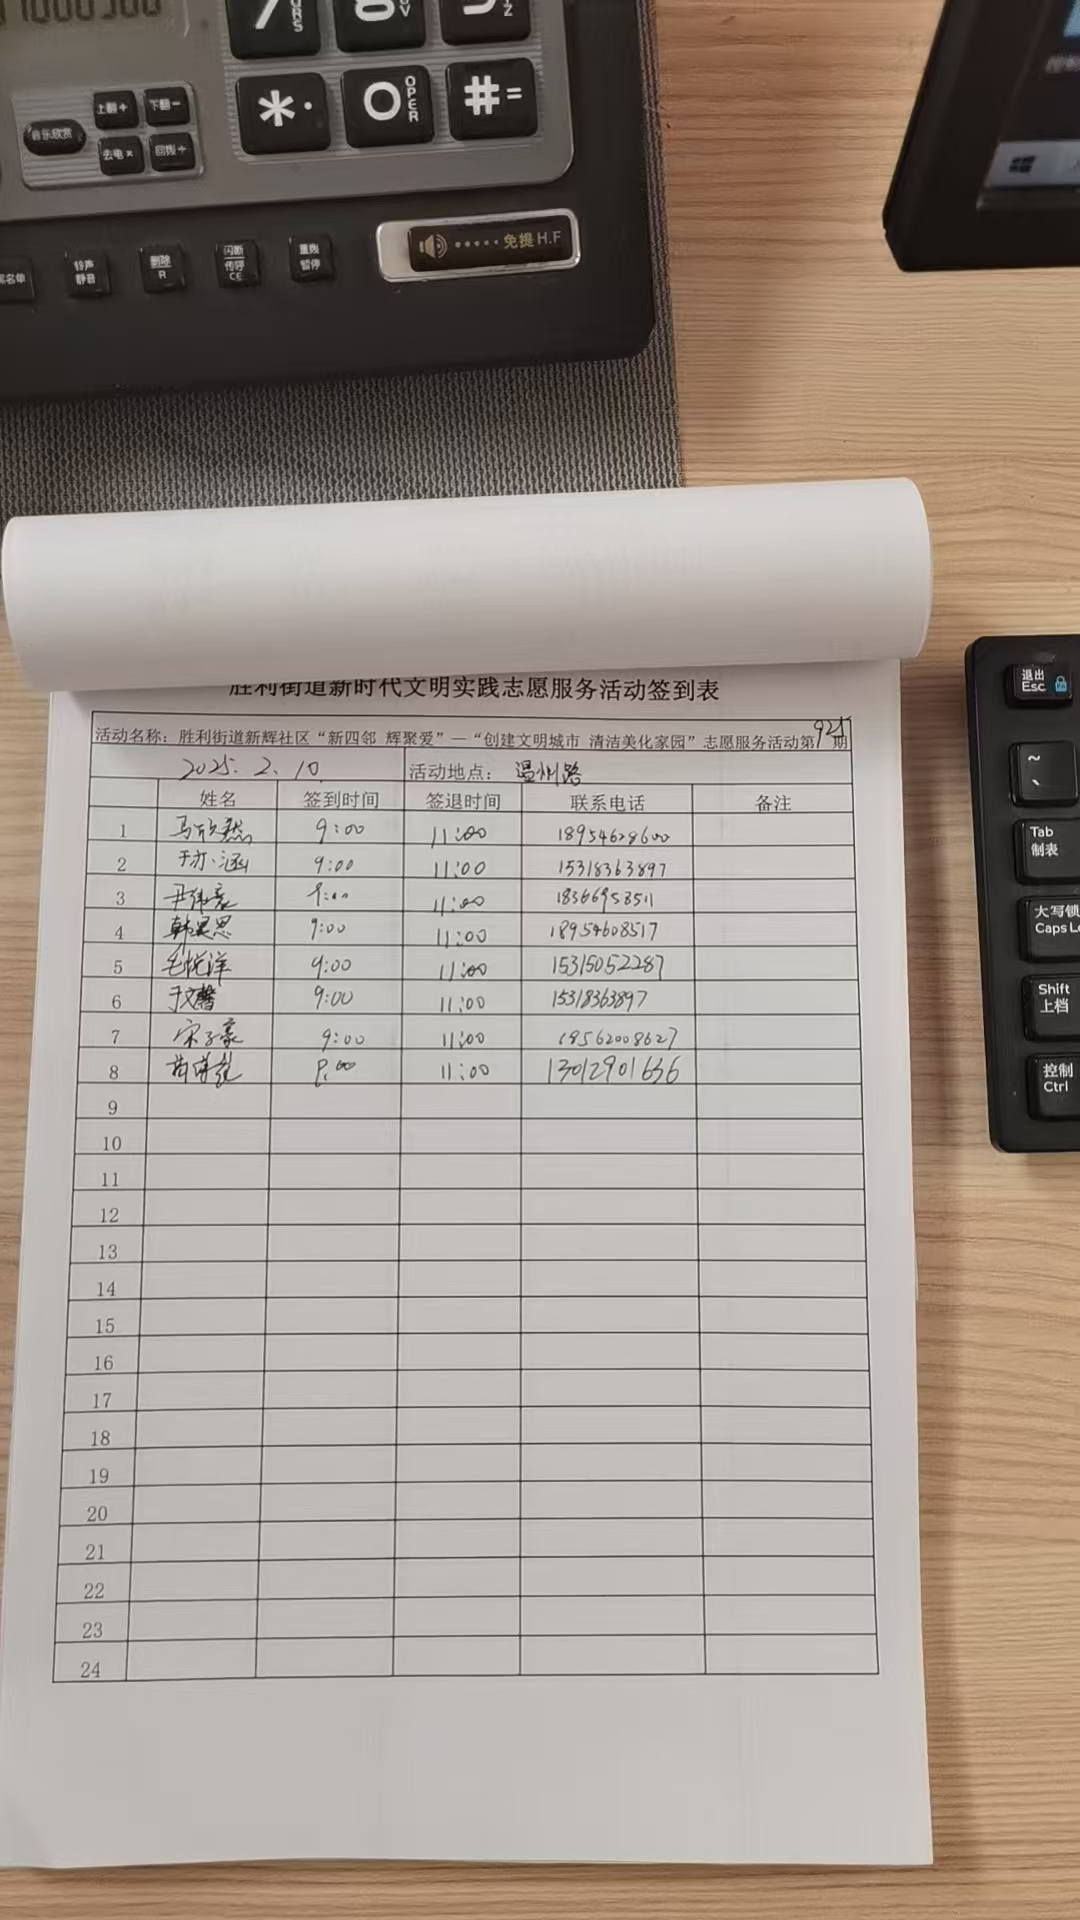 7
RS
8
V
9
Z
*·
0
OPER
#=
音乐欣赏
上翻+
下翻-
去电×
回拨÷
黑名单
铃声
静音
删除
R
闪断
传呼
CE
重拨
暂停
免提H.F
退出
Esc
~
Tab
制表
大写锁
Caps Lo
Shift
上档
控制
Ctrl
胜利街道新时代文明实践志愿服务活动签到表
活动名称：胜利街道新辉社区“新四邻 辉聚爱”—“创建文明城市 清洁美化家园”志愿服务活动第925期
2025.2.10 活动地点：温州路
姓名 签到时间 签退时间 联系电话 备注
1 马欣然 9:00 11:00 18954628600
2 于亦涵 9:00 11:00 15318363897
3 尹伟豪 9:00 11:00 18366953511
4 韩昊思 9:00 11:00 18954608517
5 毛悦洋 9:00 11:00 15315052287
6 于文馨 9:00 11:00 15318363897
7 宋子豪 9:00 11:00 18562008627
8 9:00 11:00 13012901636
9
10
11
12
13
14
15
16
17
18
19
20
21
22
23
24